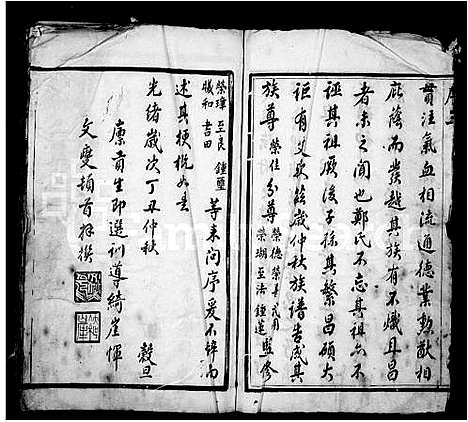 貫注氣血相流通德業勲猷相
庇蔭而發越其族有不熾且昌
者未之聞也鄭氏不忘其祖亦不
誣其祖厥後子孫其繁昌碩大
詎有艾歟餘歲仲秋族譜告成其
族尊榮佳分尊榮德榮華式用榮瑚至法鍾選監修
榮璋至良鍾璽
曦和書田等來問序爰不辭而
述其梗概如是
光緒歲次丁丑仲秋 穀旦
廩貢生即選訓導綺崖惲
文燮頓首拜撰